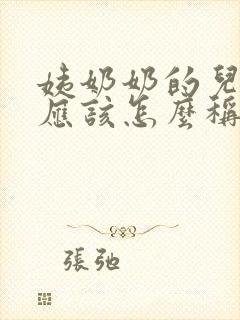 姨奶奶的兒
應該怎麼稱
張弛